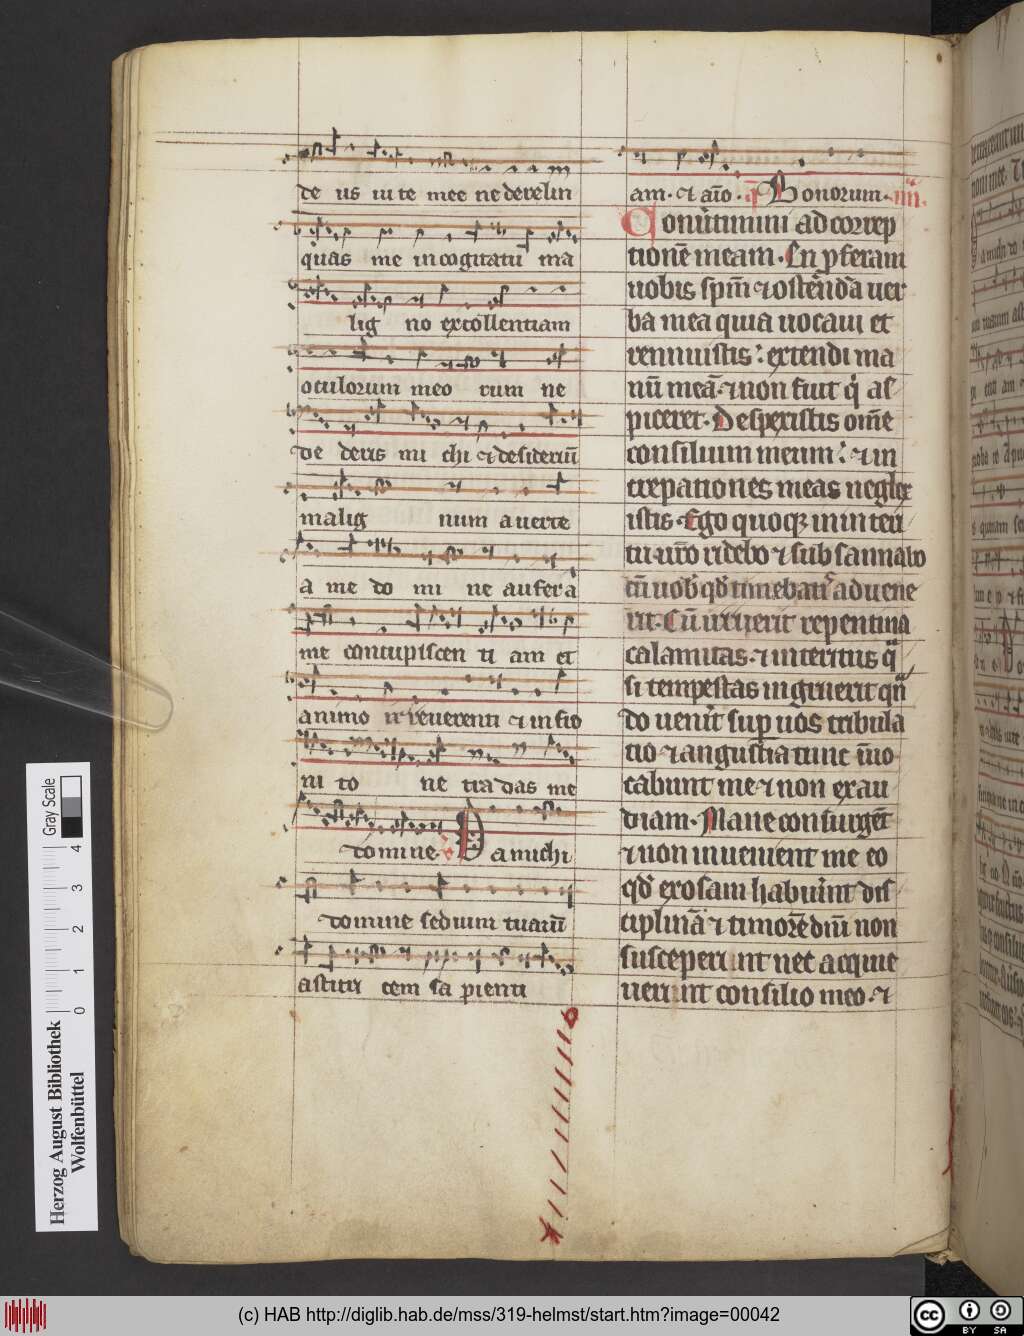 de us ui te mee ne derelin
quas me in cogitatu ma
lig no extollentiam
oculorum meo rum ne
de deris mi chi ⁊ desideriū
malig num auerte
a me do mi ne aufer a
me concupiscen ti am et
animo irreuerenti ⁊ infio
ni to ne tradas me
domine. ℣ Da michi
domine sedium tuarū
astitir cem sa pienti
am. ⁊ aīo. Bonorum. iiii.
Conůtimini ad correp
tionē meam. En ꝓferam
uobis spm̄ ⁊ ostēdā uer
ba mea quia uocaui et
rennuistis: extendi ma
nū meā ⁊ non fuit qͥ as
piceret. Despexistis om̄e
consilium meum: ⁊ in
crepationes meas neglex
istis. Ego quoqꝫ in interi
tu ur̄o ridebo ⁊ subsannabo
cū uob̕ qd̕ timebatis aduene
rit. Cū irruerit repentina
calamitas. ⁊ interitus qͣ
si tempestas ingruerit qn̄
do uenīt sup̱ uos tribula
tio ⁊ angustia tunc īuo
cabunt me ⁊ non exau
diam. Mane consurgēt
⁊ non inuenient me eo
qd̕ exosam habuīnt dis
ciplinā ⁊ timorē dn̄i non
susceperunt nec acquie
uerunt consilio meo. ⁊
Gray Scale
0 1 2 3 4
Herzog August Bibliothek
Wolfenbüttel
(c) HAB http://diglib.hab.de/mss/319-helmst/start.htm?image=00042
cc BY SA